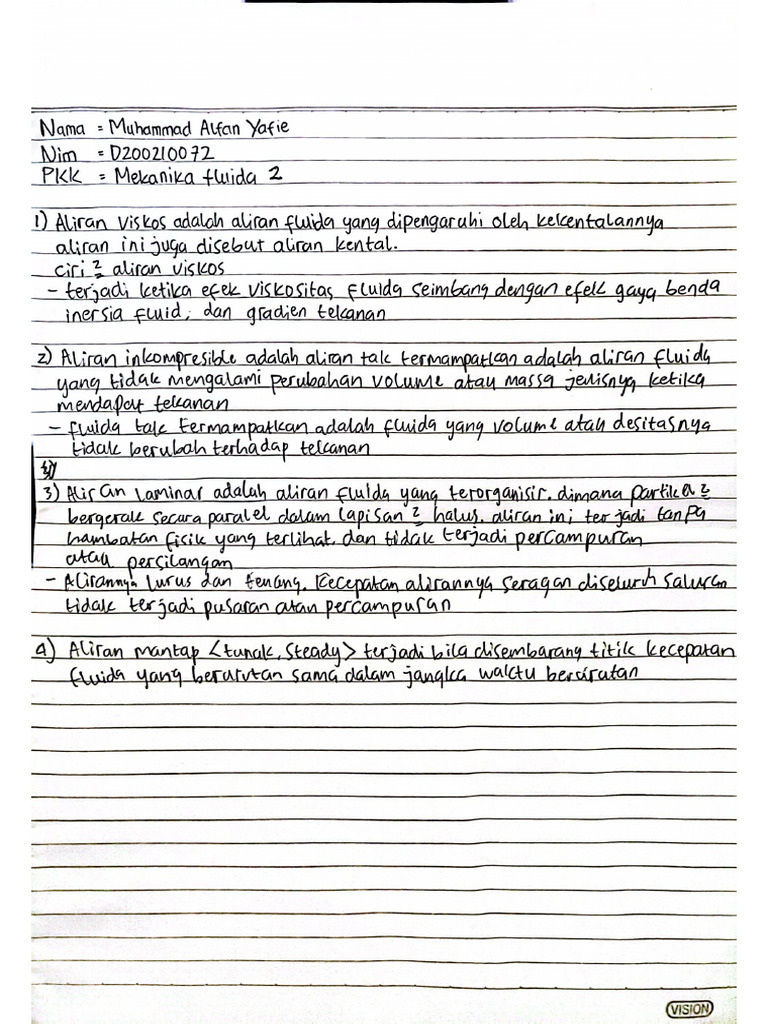 Nama = Muhammad Alfan Yafie
Nim = D200210072
PKK = Mekanika fluida 2
1) Aliran viskos adalah aliran fluida yang dipengaruhi oleh kekentalannya
aliran ini juga disebut aliran kental.
ciri 2 aliran viskos
- terjadi ketika efek viskositas fluida seimbang dengan efek gaya benda
inersia fluid, dan gradien tekanan
2) Aliran inkompresible adalah aliran tak termampatkan adalah aliran fluida
yang tidak mengalami perubahan volume atau massa jenisnya ketika
mendapat tekanan
- fluida tak termampatkan adalah fluida yang volume atau desitasnya
tidak berubah terhadap tekanan
3) Aliran laminar adalah aliran fluida yang terorganisir. dimana partikel 2
bergerak secara paralel dalam lapisan 2 halus. aliran ini terjadi tanpa
hambatan fisik yang terlihat. dan tidak terjadi percampuran
atau persilangan
- Alirannya lurus dan tenang. Kecepatan alirannya seragan diseluruh saluran
tidak terjadi pusaran atau percampuran
4) Aliran mantap <tunak, Steady> terjadi bila disembarang titik kecepatan
fluida yang berurutan sama dalam jangka waktu berurutan
VISION